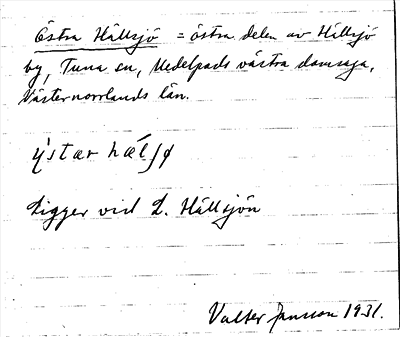 Östra Hällsjö = östra delen av Hällsjö
by, Tuna sn, Medelpads västra domsaga,
Västernorrlands län.
ýstar hælʃø
Ligger vid L. Hällsjön
Valter Jansson 1931.